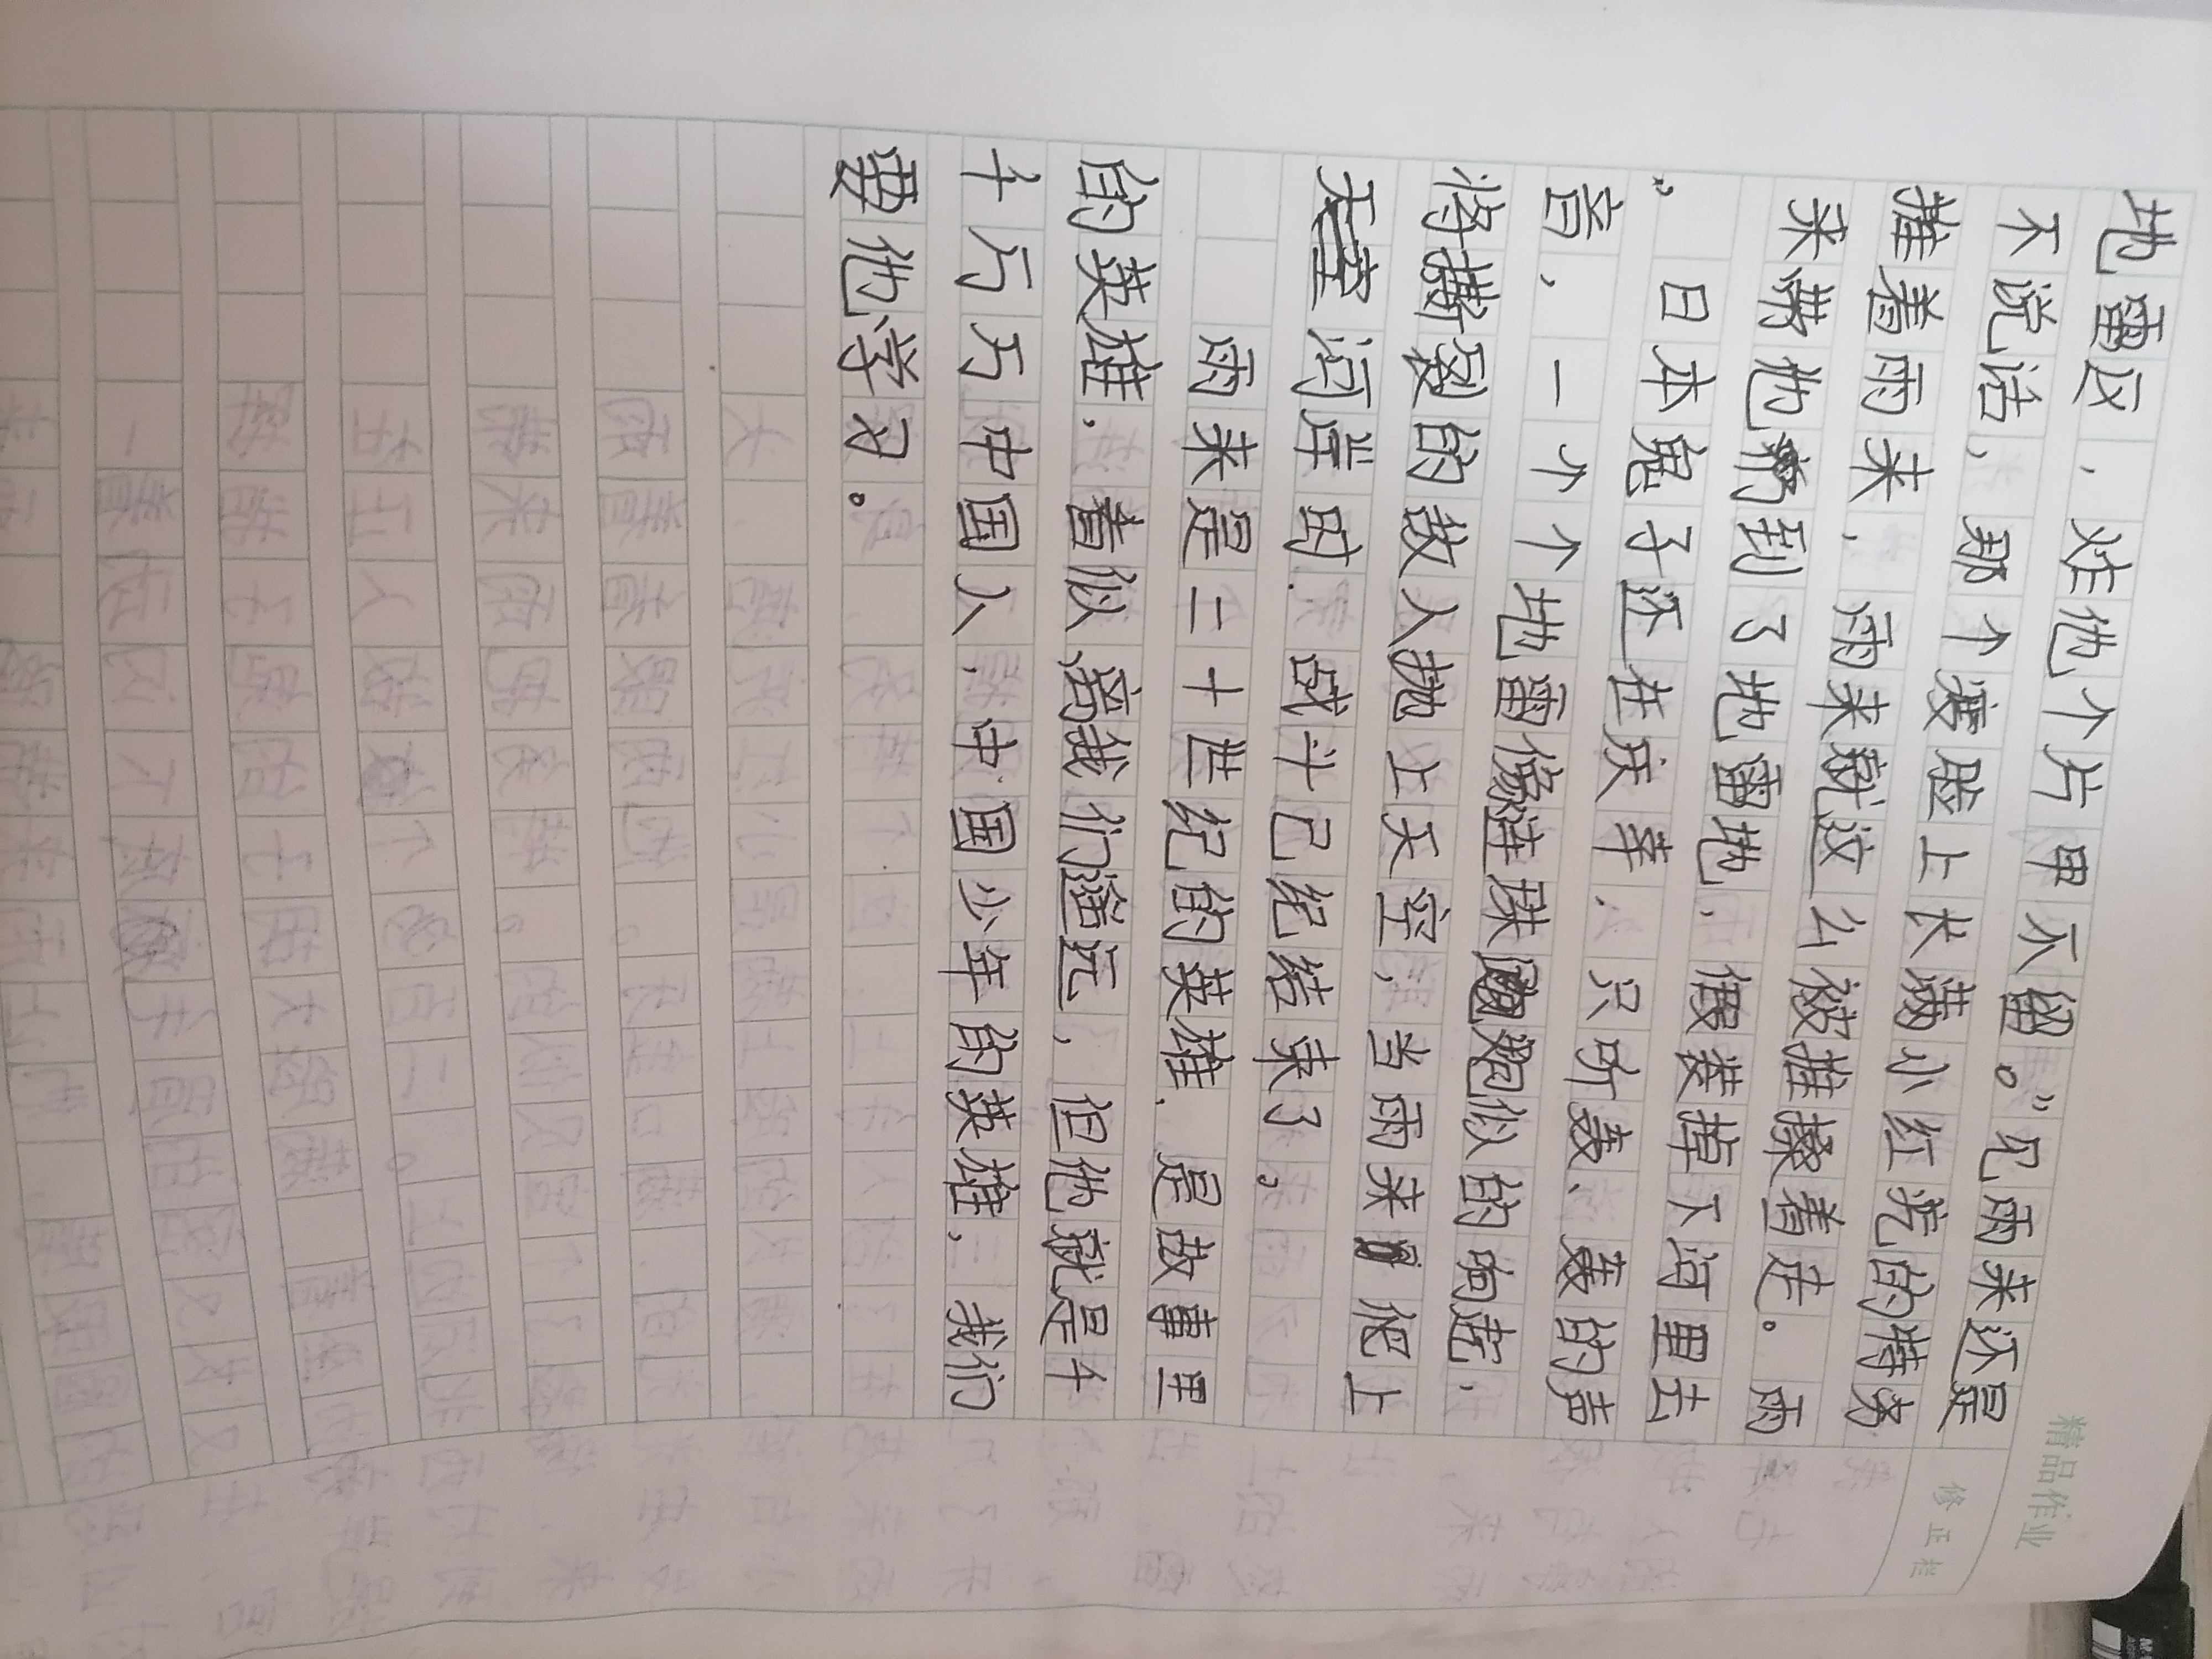 精品作业
修正栏
地雷区，炸他个片甲不留。”见雨来还是
不说话，那个脸上长满小红疙的特务
推着雨来，雨来就这么被推搡着走。雨
来带他们到了地雷地，假装掉下河里去
”日本鬼子还在庆幸，只听轰、轰的声
音，一个个地雷像连珠炮似的响起，
将撕裂的敌人抛上天空，当雨来爬上
河岸时，战斗已纪结束了。
雨来是二十世纪的英雄，是故事里
的英雄，看似离我们遥远，但他就是千
千万万中国人，中国少年的英雄，我们
要他学习。